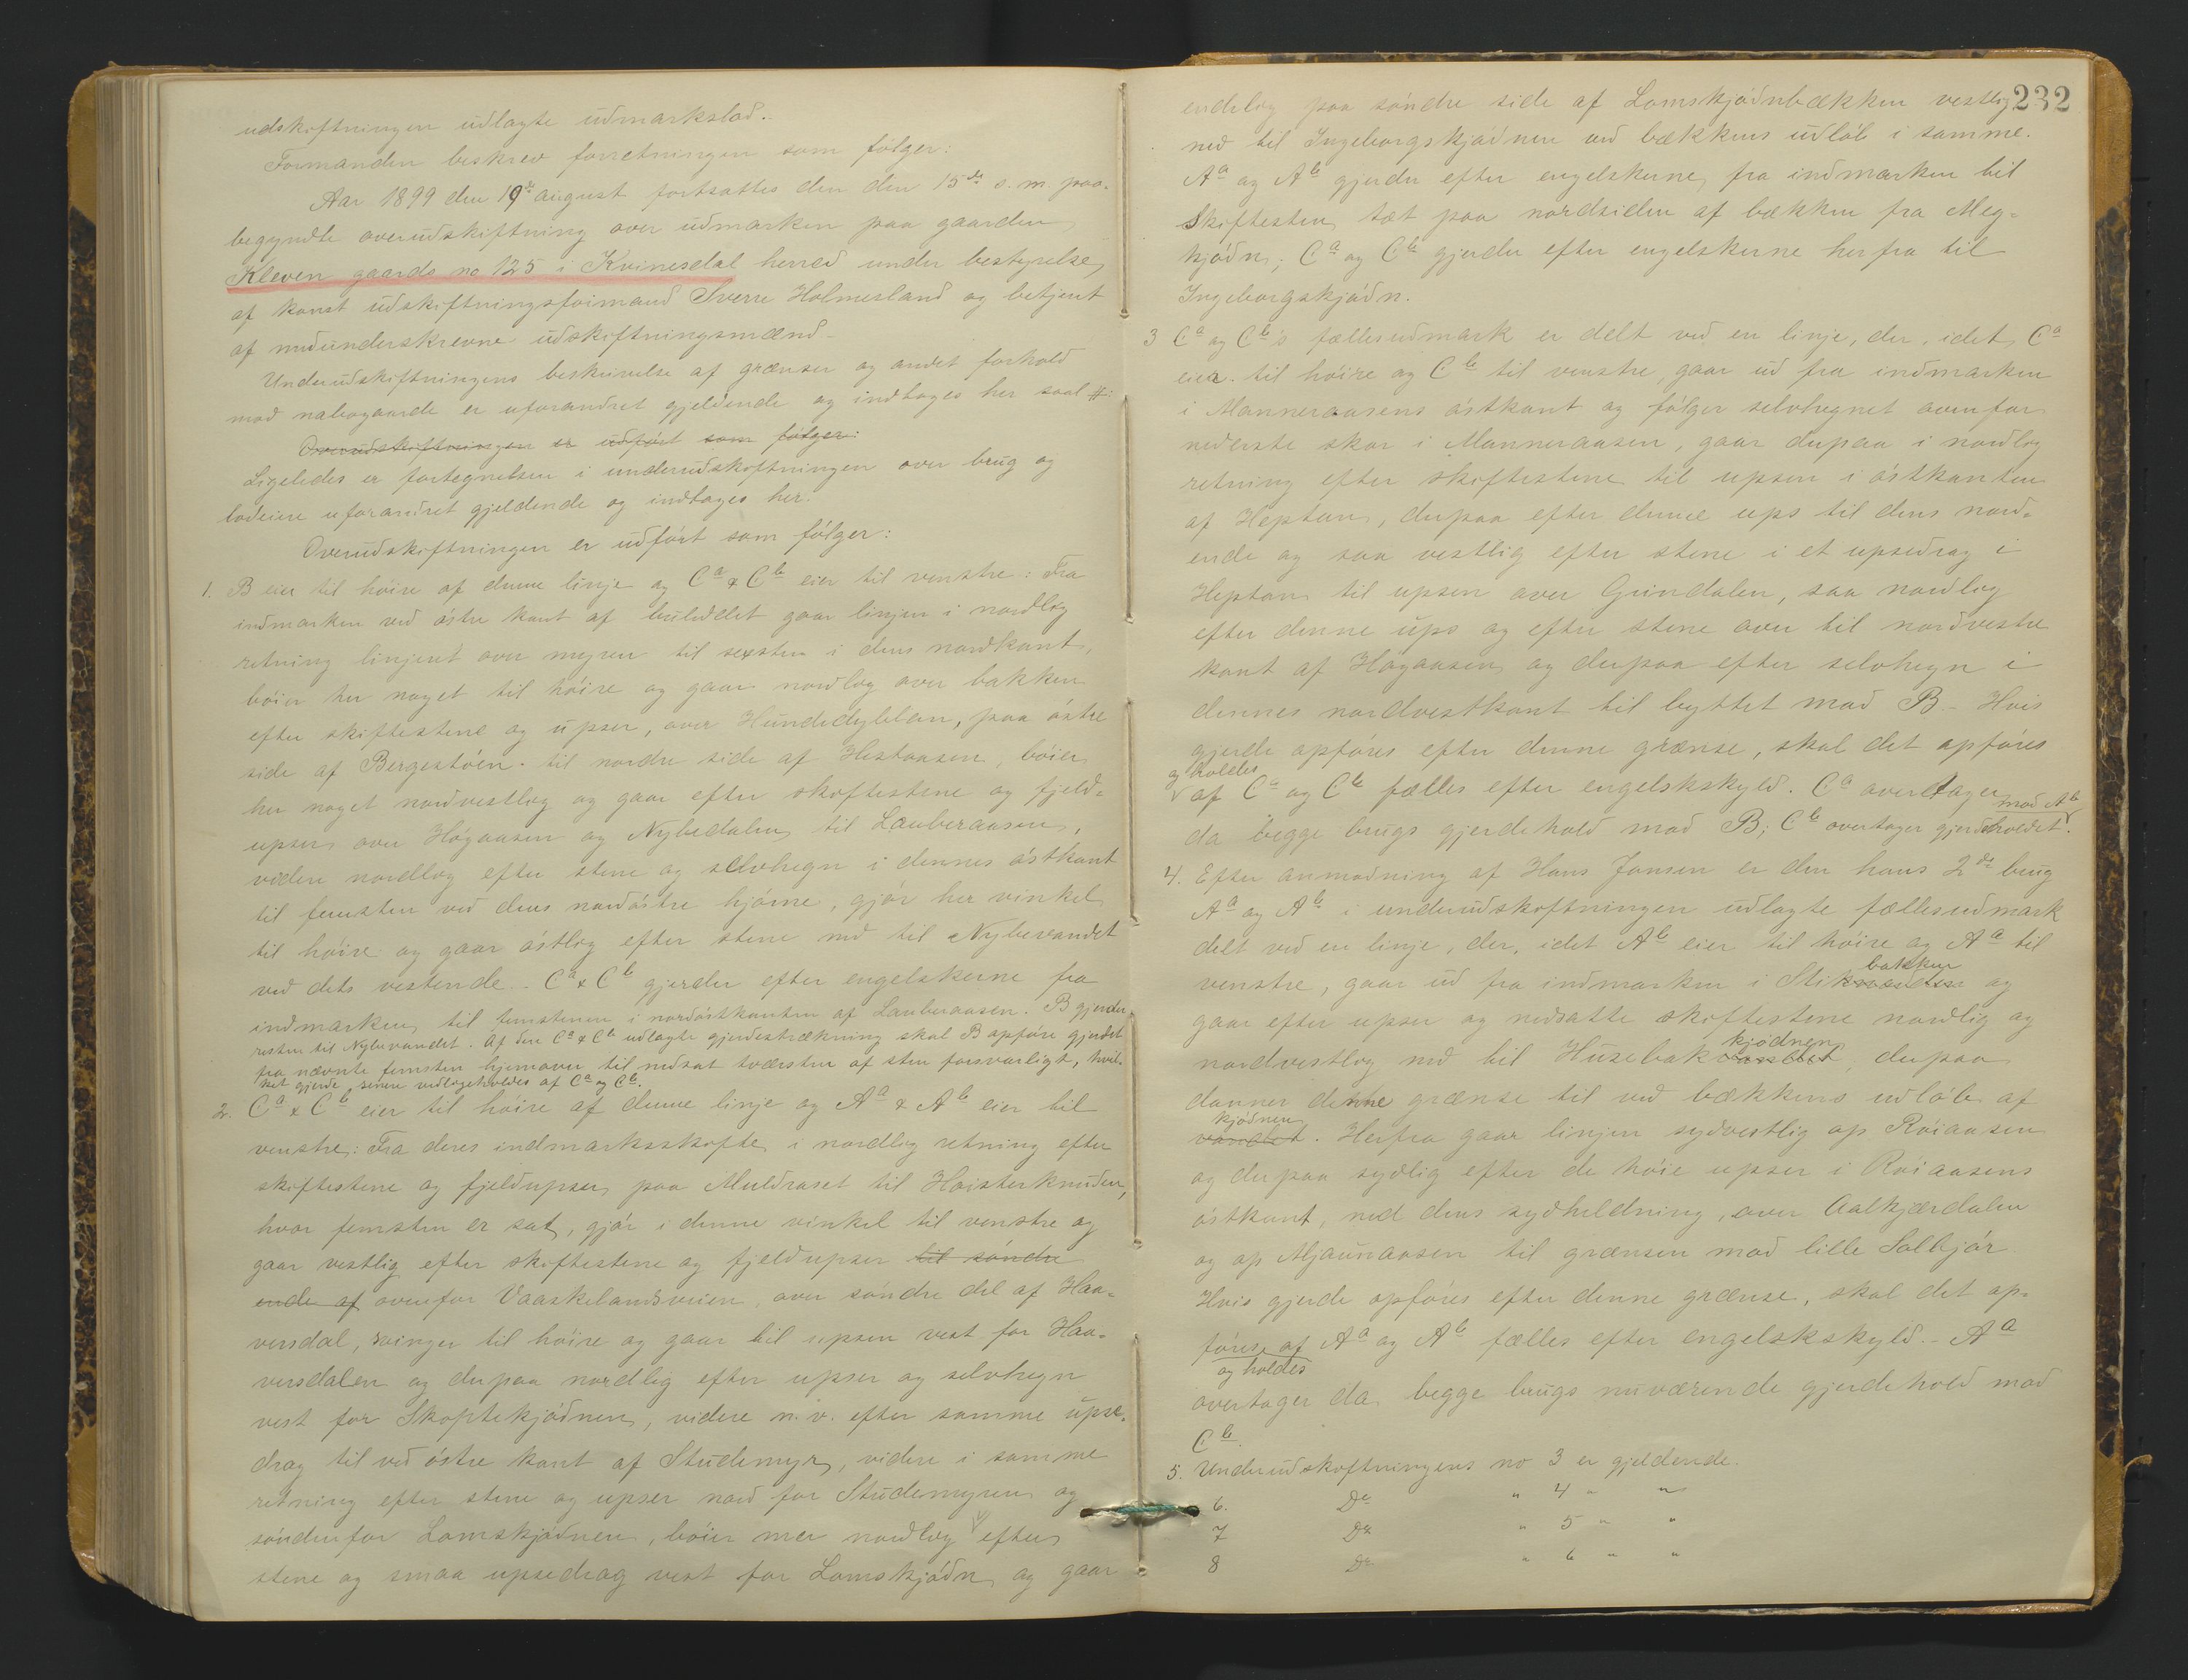 udskiftningen udlagte udmarkslod.-
Formanden beskrev forretningen som følger:
Aar 1899 den 19de august fortsattes den den 15de s.m. paa-
begyndte overudskiftning over udmarken paa gaarden
Kleven gaards no 125 i Kvinesdal herred under bestyrelse
af konst udskiftningsformand Sverre Holmesland og betjent
af medunderskrevne udskiftningsmænd.
Underudskiftningens beskrivelse af grænser og andet forhold
mod nabogaarde er uforandret gjeldende og indtages her saal #:
Overudskiftningen er udført som følger:
Ligeledes er fortegnelsen i underudskiftningen over brug og
lodeiere uforandret gjeldende og indtages her.
Overudskiftningen er udført som følger:
1. B eier til høire af denne linje og Ca & Cb eier til venstre: Fra
indmarken ved østre kant af buleddet gaar linjen i nordlig
retning linjeret over myren til sexsten i dens nordkant,
bøier her noget til høire og gaar nordlig over bakken
efter skiftestene og upser, over Hundedyblan, paa østre
side af Bergestøen. til nordre side af Hestaasen, bøier
her noget nordvestlig og gaar efter skiftestene og fjeld-
upser over Høgaasen og Nybudalen til Lauberaasen,
videre nordlig efter stene og selvhegn i dennes østkant
til femsten ved dens nordøstre hjørne, gjør her vinkel
til høire og gaar østlig efter stene ned til Nybuvandet
ved dets vestende. Ca & Cb gjerder efter engelskerne fra
indmarken til femstenen i nordøstkanten af Lauberaasen. B gjerder
resten til Nybuvandet. Af den Ca & Cb udlagte gjerdestrækning skal B opføre gjerdet
fra nævnte femsten hjemover til nedsat tværsten af sten forsvarligt, hvil-
ket gjerde senere vedligeholdes af Ca og Cb.
2. Ca & Cb eier til høire af denne linje og Aa & Ab eier til
venstre: Fra deres indmarksskifte i nordlig retning efter
skiftestene og fjeldupser paa Muldraset til Haisterknuden,
hvor femsten er sat, gjør i denne vinkel til venstre og
gaar vestlig efter skiftestene og fjeldupser til søndre
ende af ovenfor Vaaskelandsveien, over søndre del af Haa-
versdal, svinger til høire og gaar til upsen vest for Haa-
versdalen og derpaa nordlig efter upser og selvhegn
vest for Skoptekjødnen, videre n.v. efter samme upse-
drag til ved østre kant af Studemyr, videre i samme
retning efter stene og upser nord for Studemyren og
søndenfor Lomskjødnen, bøier mer nordlig efter
stene og smaa upsedrag vest for Lomskjødn og gaar
232
endelig paa søndre side af Lomskjødnbækken vestlig
ned til Ingeborgskjødnen ved bækkens udløb i samme.
Aa og Ab gjerder efter engelskerne fra indmarken til
Skiftesten tæt paa nordsiden af bækken fra Meg-
kjødn; Ca og Cb gjerder efter engelskerne herfra til
Ingeborgskjødn.
3 Ca og Cb's fællesudmark er delt ved en linje, der, idet Ca
eier til høire og Cb til venstre, gaar ud fra indmarken
i Manneraasens østkant og følger selvhegnet ovenfor
nederste skar i Manneraasen, gaar derpaa i nordlig
retning efter skiftestene til upsen i østkanten
af Heptan, derpaa efter denne ups til dens nord-
ende og saa vestlig efter stene i et upsedrag i
Heptan til upsen over Grindalen, saa nordlig
efter denne ups og efter stene over til nordvestre
kant af Høgaasen og derpaa efter selvhegn i
dennes nordvestkant til byttet mod B. Hvis
gjerde opføres efter denne grænse, skal det opføres
og holdes
af Ca og Cb fælles efter engelskskyld. Ca overtager
mod Ab
da begge brugs gjerdehold mod B; Cb overtager gjerdeholdet.
4. Efter anmodning af Hans Jansen er den hans 2de brug
Aa og Ab i underudskiftningen udlagte fællesudmark
delt ved en linje, der, idet Ab eier til høire og Aa til
bakken
venstre, gaar ud fra indmarken i Stik og
gaar efter upser og nedsatte skiftestene nordlig og
kjødnen
nordvestlig ned til Husebakvandet, derpaa
danner denne grænse til ved bækkens udløb af
kjødnen
vandet. Herfra gaar linjen sydvestlig op Røiaasen
og derpaa sydlig efter de høie upser i Røiaasens
østkant, ned dens sydheldning, over Aalkjærdalen
og op Mjaunaasen til grænsen mod lille Salbjør
Hvis gjerde opføres efter denne grænse, skal det op-
føres af Aa og Ab fælles efter engelskskyld. Aa
og holdes
overtager da begge brugs nuværende gjerdehold mod
Cb.
5. Underudskiftningens no 3 er gjeldende.
6. Do " 4 " "
7 Do " 5 " "
8 Do " 6 " "